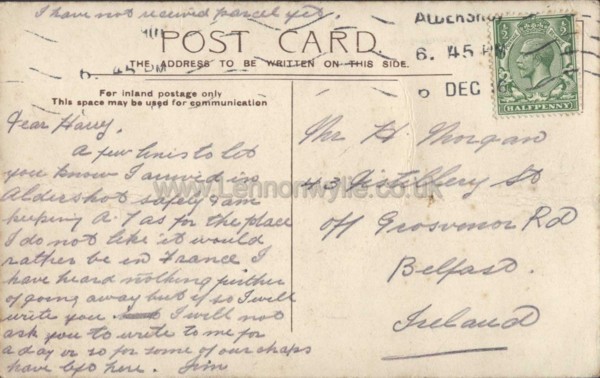 I have not received parcel yet.
ALDERSHOT
6. 45 PM
6 DEC 16
HALFPENNY
6. 45 PM
POST CARD.
THE ADDRESS TO BE WRITTEN ON THIS SIDE.
For inland postage only
This space may be used for communication
Dear Harry,
A few lines to let
you know I arrived in
Aldershot safely & am
keeping A.1 as for the place
I do not like it would
rather be in France I
have heard nothing further
of going away but if so I will
write you. I will not
ask you to write to me for
a day or so for some of our chaps
have left here. Jim
Mr H. Morgan
43 Distillery St
off Grosvenor Rd
Belfast.
Ireland
www.Lennonwylie.co.uk